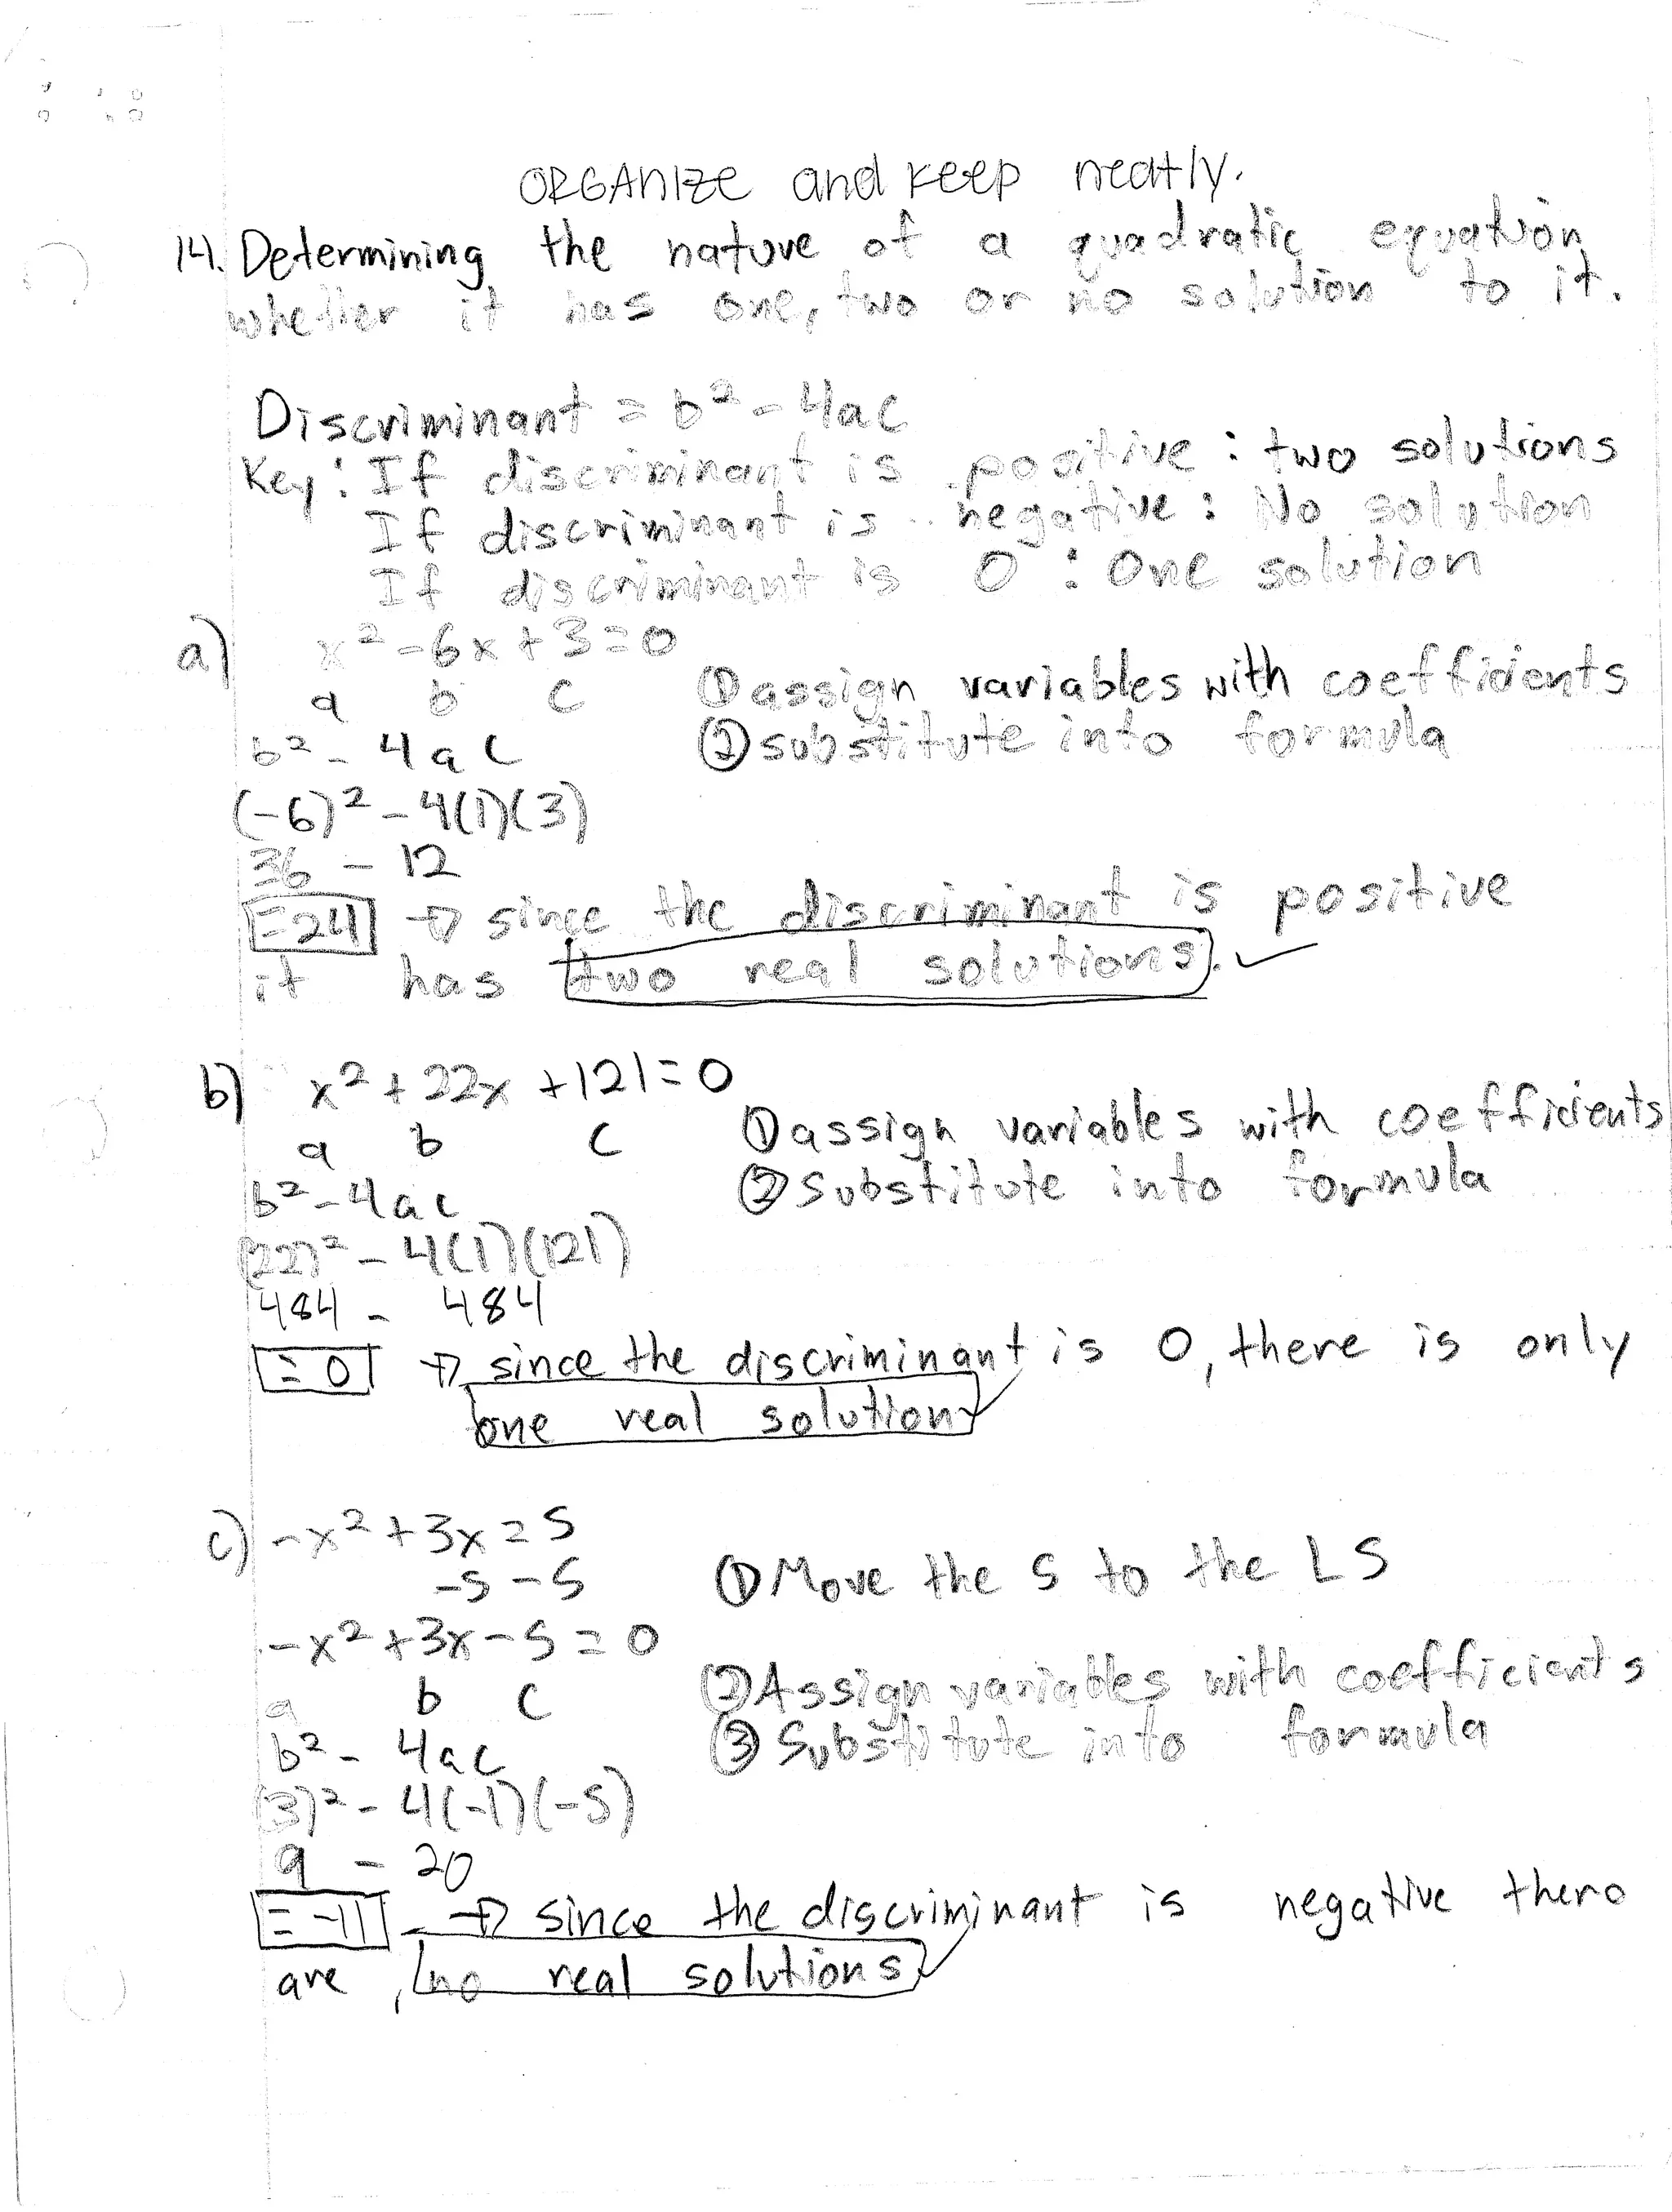 ORGANIZE and keep neatly.
14. Determining the nature of a quadratic equation
whether it has one, two or no solution to it.
Discriminant = b² - 4ac
Key: If discriminant is positive : two solutions
If discriminant is negative : No solution
If discriminant is 0 : One solution
a) x² - 6x + 3 = 0
a b c ① assign variables with coefficients
b² - 4ac ② substitute into formula
(-6)² - 4(1)(3)
36 - 12
= 24 → since the discriminant is positive
it has two real solutions.
b) x² + 22x + 121 = 0
a b c ① assign variables with coefficients
b² - 4ac ② Substitute into formula
(22)² - 4(1)(121)
484 - 484
= 0 → since the discriminant is 0, there is only
one real solution
c) -x² + 3x = 5
-5 -5 ① Move the 5 to the LS
-x² + 3x - 5 = 0
a b c ② Assign variables with coefficients
b² - 4ac ③ Substitute into formula
(3)² - 4(-1)(-5)
9 - 20
= -11 → since the discriminant is negative there
are, no real solutions